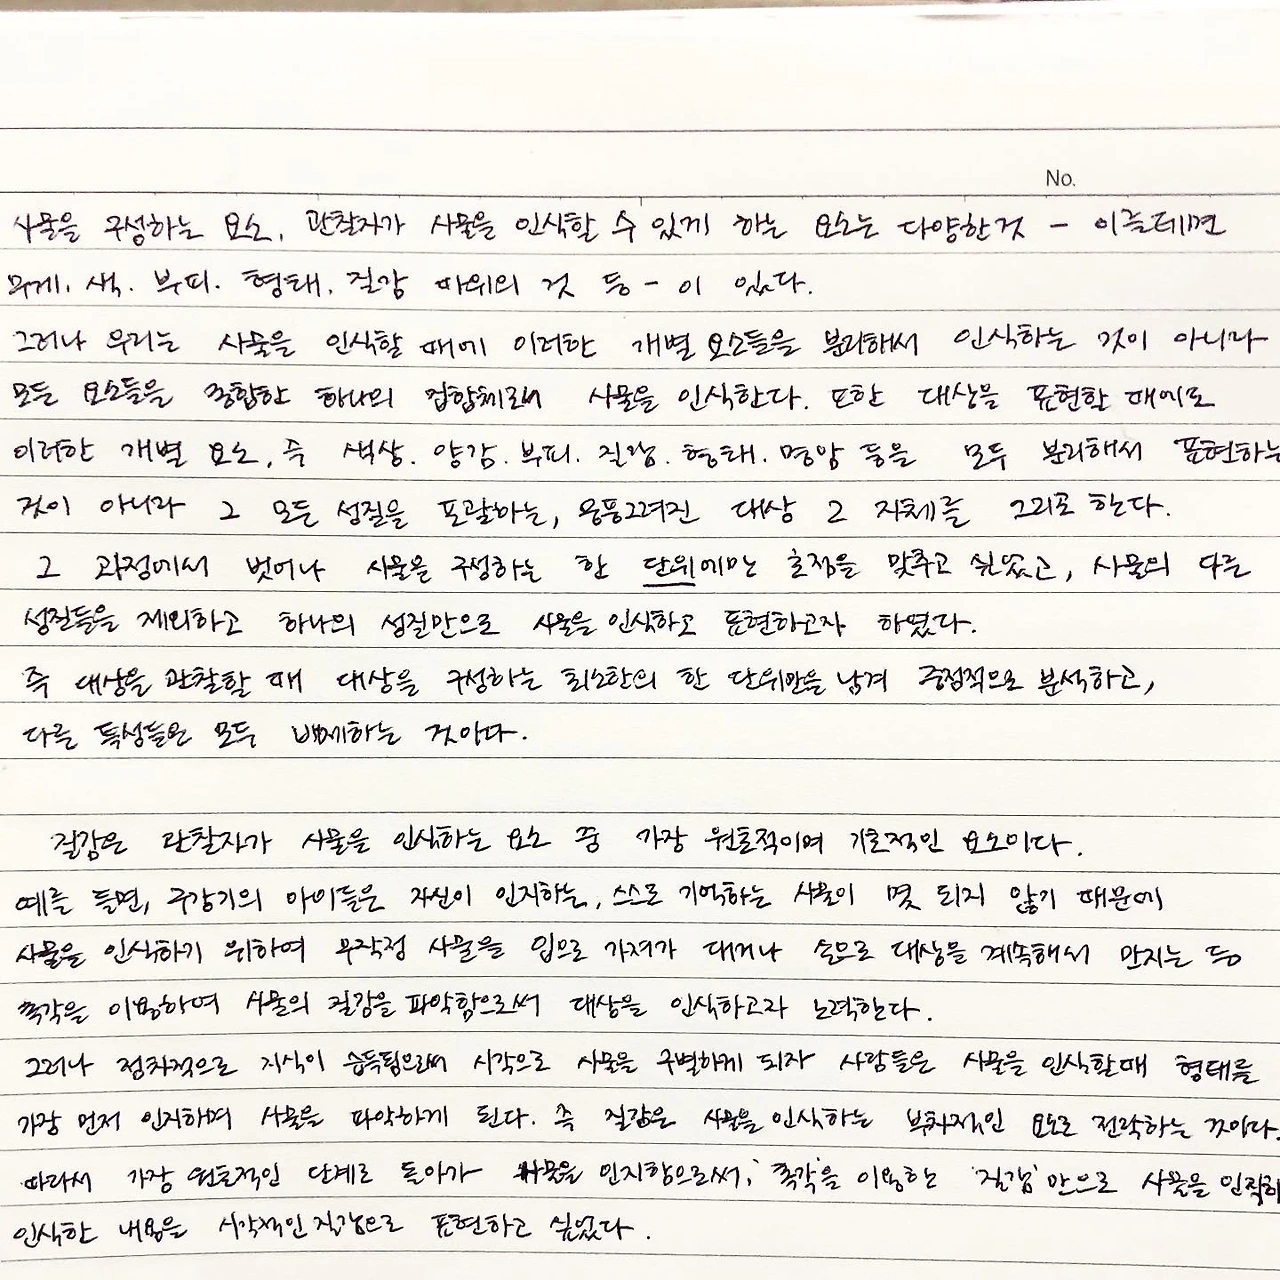 No.
사물을 구성하는 요소, 관찰자가 사물을 인식할 수 있게 하는 요소는 다양한것 - 이를테면
무게. 색. 부피. 형태. 질감 따위의 것 등 - 이 있다.
그러나 우리는 사물을 인식할 때에 이러한 개별 요소들을 분리해서 인식하는 것이 아니라
모든 요소들을 종합한 하나의 집합체로써 사물을 인식한다. 또한 대상을 표현할 때에도
이러한 개별 요소, 즉 색상. 양감. 부피. 질감. 형태. 명암 등을 모두 분리해서 표현하는
것이 아니라 그 모든 성질을 포괄하는, 뭉뚱그려진 대상 그 자체를 그리곤 한다.
그 과정에서 벗어나 사물을 구성하는 한 단위에만 초점을 맞추고 싶었고, 사물의 다른
성질들을 제외하고 하나의 성질만으로 사물을 인식하고 표현하고자 하였다.
즉 대상을 관찰할 때 대상을 구성하는 최소한의 한 단위만을 남겨 중점적으로 분석하고,
다른 특성들은 모두 배제하는 것이다.
질감은 관찰자가 사물을 인식하는 요소 중 가장 원초적이며 기초적인 요소이다.
예를 들면, 구강기의 아이들은 자신이 인지하는, 스스로 기억하는 사물이 몇 되지 않기 때문에
사물을 인식하기 위하여 무작정 사물을 입으로 가져가 대거나 손으로 대상을 계속해서 만지는 등
촉각을 이용하여 사물의 질감을 파악함으로써 대상을 인식하고자 노력한다.
그러나 점차적으로 지식이 습득됨으로써 시각으로 사물을 구별하게 되자 사람들은 사물을 인식할때 형태를
가장 먼저 인지하며 사물을 파악하게 된다. 즉 질감은 사물을 인식하는 부차적인 요소로 전락하는 것이다.
따라서 가장 원초적인 단계로 돌아가 사물을 인지함으로써, '촉각'을 이용한 '질감' 만으로 사물을
인식한 내용을 시각적인 질감으로 표현하고 싶었다.